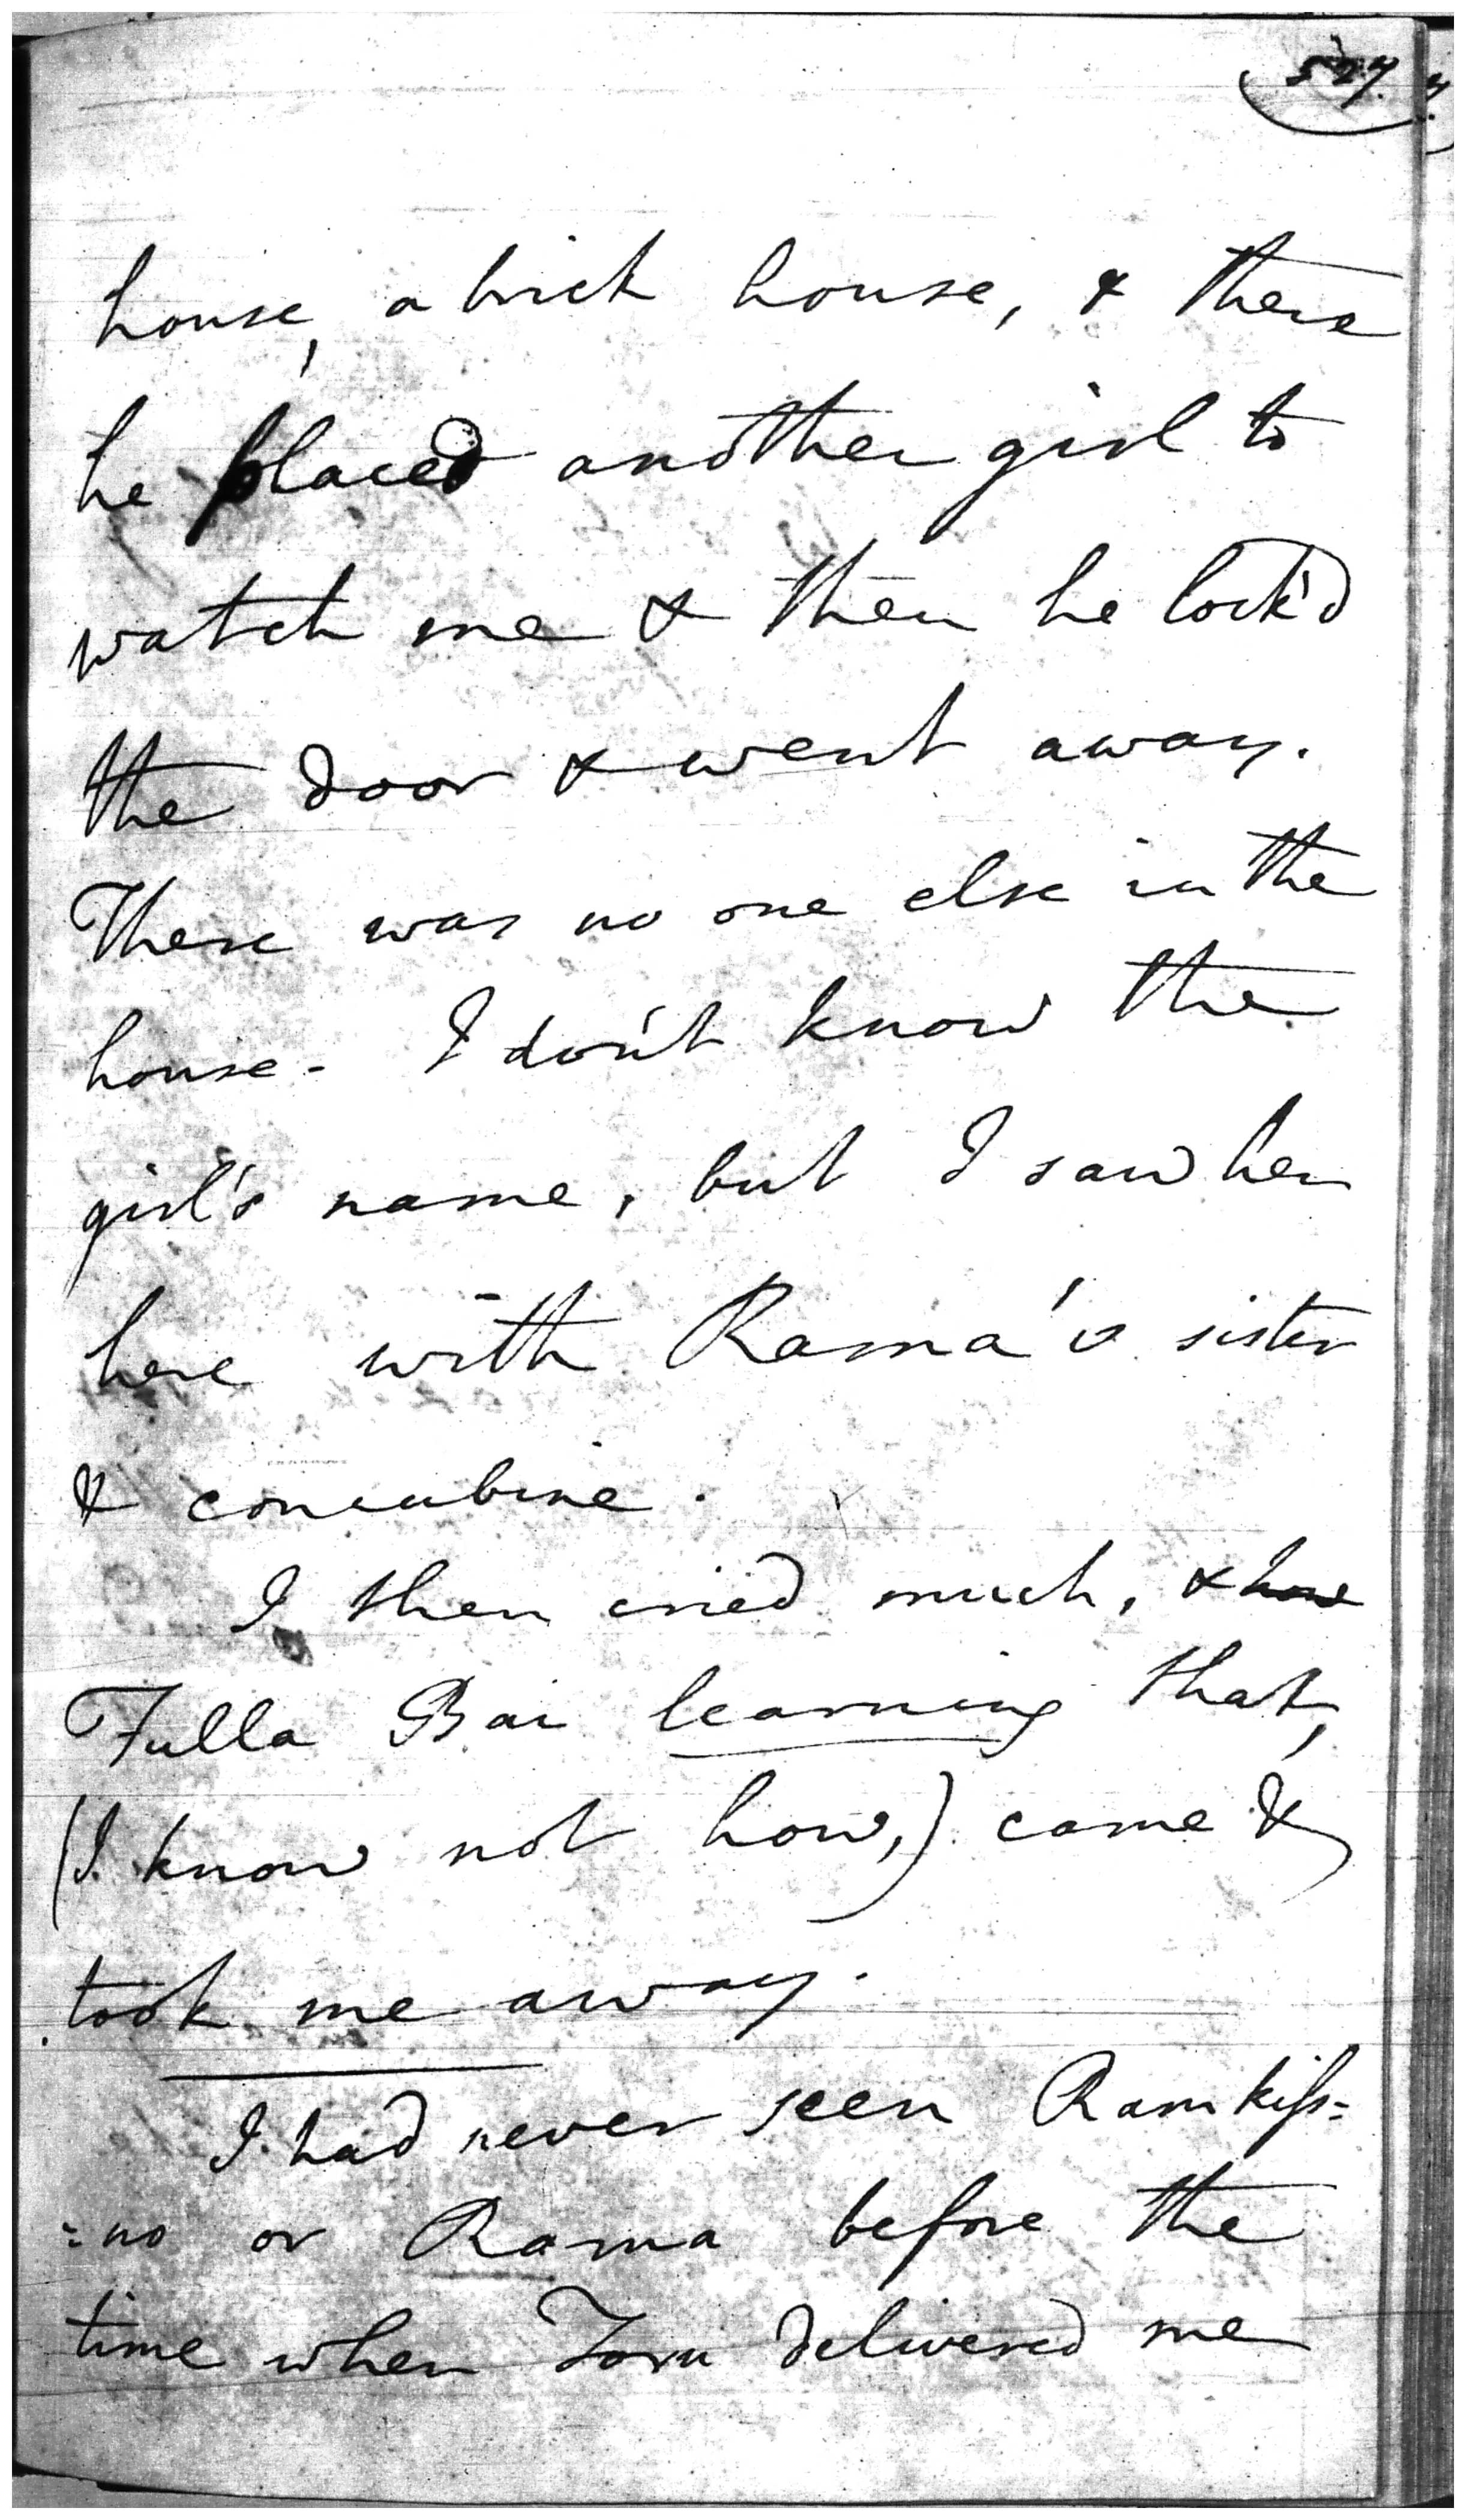 527.
house, a brick house, & there
he placed another girl to
watch me & then he lock'd
the door & went away.
There was no one else in the
house - I don't know the
girl's name, but I saw her
here with Rama's sister
& concubine.
I then cried much, &
Fulla Bai learning that,
(I know not how,) came &
took me away.
I had never seen Ramkiss=
=no or Rama before the
time when delivered me